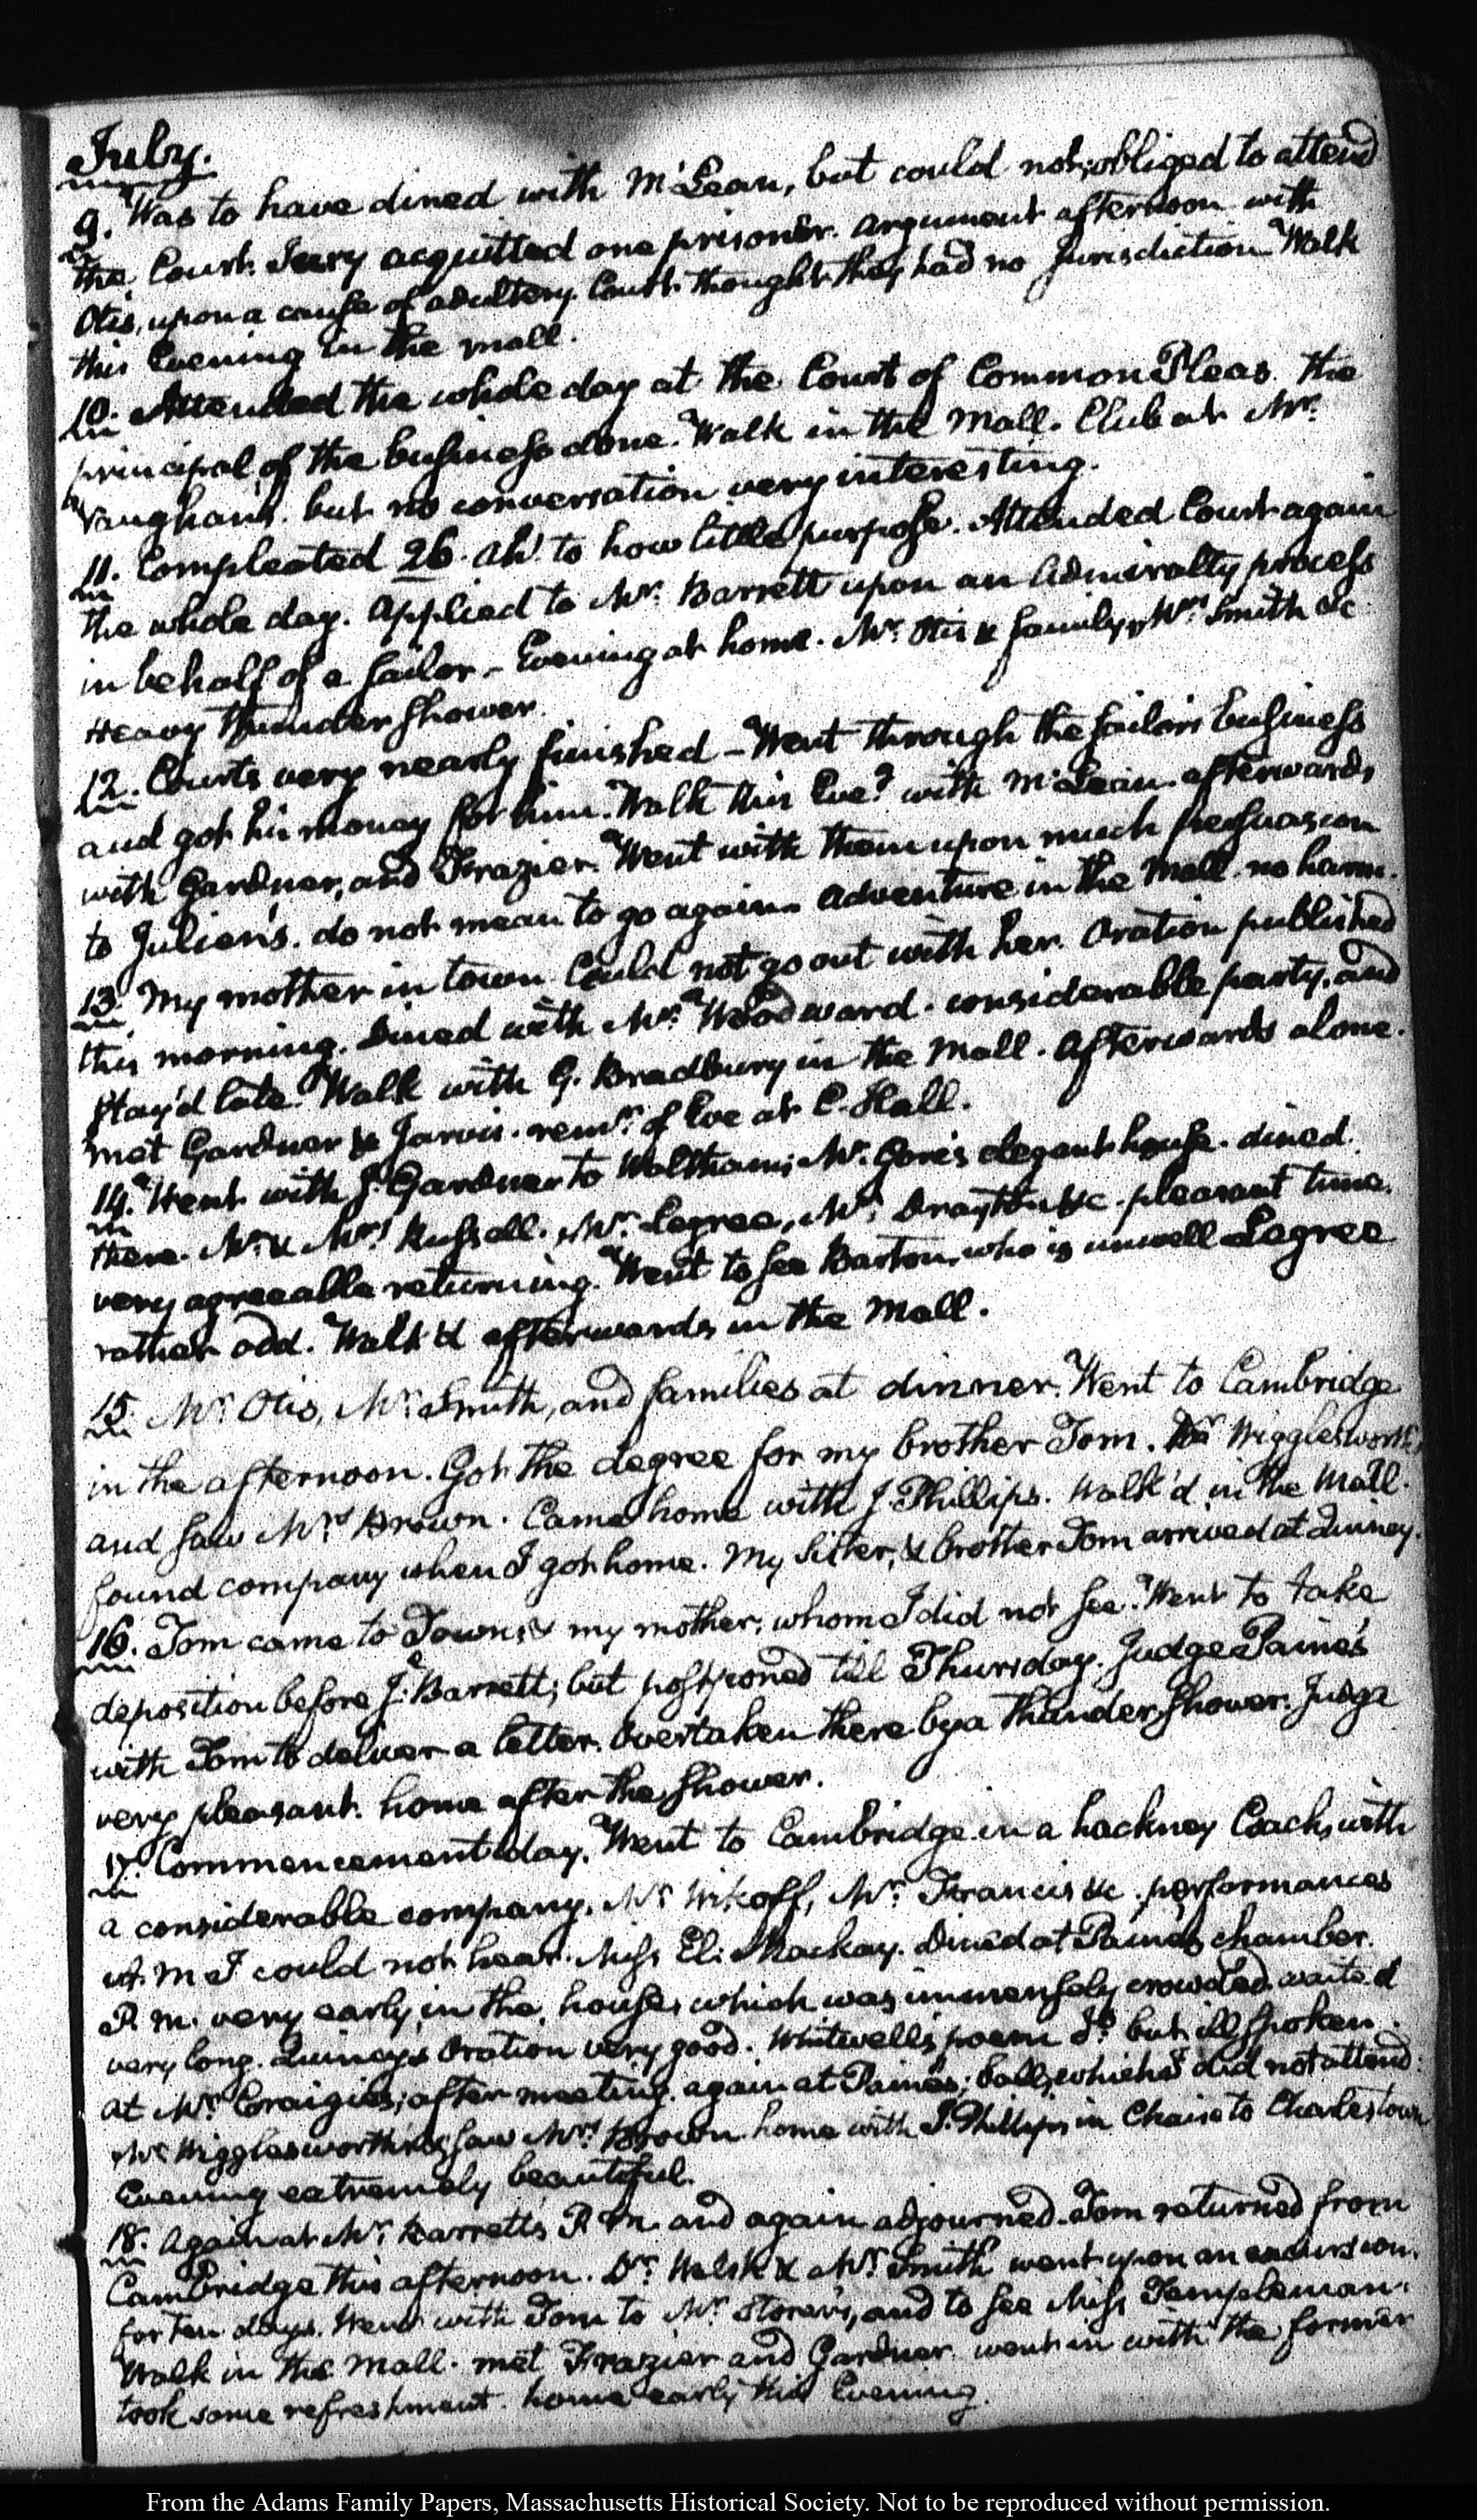 July.
9. Was to have dined with McLean, but could not; obliged to attend
the Court. Jury acquitted one prisoner. Argument afternoon with
Otis, upon a cause of adultery. Court thought they had no Jurisdiction. Walk
this Evening in the mall.
10. Attended the whole day at the Court of Common Pleas. The
principal of the business done. Walk in the Mall. Club at Mr.
Vaughan's. but no conversation very interesting.
11. Compleated 26. Ah! to how little purpose. Attended Court again
the whole day. Applied to Mr. Barrett upon an Admiralty process
in behalf of a sailor – Evening at home. Mr. Otis & family, Mrs. Smith &c
Heavy thunder shower.
12. Courts very nearly finished – Went through the sailors business
and got his money for him. Walk this Eveg. with McLean. afterwards
with Gardner, and Frazier. Went with them upon much persuasion
to Julien's. do not mean to go again. Adventure in the Mall. no harm.
13. My mother in town. Could not go out with her. Oration published
this morning. Dined with Mr. Woodward. considerable party, and
stay'd late. Walk with G. Bradbury in the Mall. Afterwards alone.
met Gardner & Jarvis. remr. of Eve at C. Hall.
14. Went with J. Gardner to Waltham; Mr. Gore's elegant house. dined
there. Mr. & Mrs. Russell. Mr. Legree, Mr. Drayton &c. pleasant time.
very agreeable returning. Went to see Barton, who is unwell. Legree
rather odd. Walk'd afterwards in the Mall.
15. Mr. Otis, Mr. Smith, and families at dinner. Went to Cambridge
in the afternoon. Got the degree for my brother Tom. Wigglesworth,
and saw Mrs. Brown. Came home with J. Phillips. Walk'd in the Mall.
found company when I got home. My Sister, & brother Tom arrived at Quincy.
16. Tom came to Town, & my mother, whom I did not see. Went to take
deposition before J. Barrett; but postponed till Thursday. Judge Paine's
with Tom to deliver a letter. Overtaken there by a thunder shower. Judge
very pleasant. home after the shower.
17. Commencement day. Went to Cambridge in a hackney Coach, with
a considerable company. Mr. Wikoff, Mr. Francis &c. performances
A.M I could not hear. Miss Eli. Mackay. Dined at Paine's chamber.
P.M. very early in the house, which was immensely crowded. waited
very long. Quincy's Oration very good. Whitwell's poem Do. but ill spoken.
at Mr. Craigie's; after meeting. again at Paine's; ball, which I did not attend.
Mr. Wigglesworth's; saw Mrs. Brown. home with J. Phillips in Chaise to Charlestown
Evening extremely beautiful.
18. Again at Mr. Barrett's P.M. and again adjourned. Tom returned from
Cambridge this afternoon. Dr. Welsh & Mr. Smith went upon an excursion.
for ten days. Went with Tom to Mr. Storer's, and to see Miss Templeman.
Walk in the Mall. met Frazier and Gardner. went in with the former
took some refreshment. home early this Evening.
From the Adams Family Papers, Massachusetts Historical Society. Not to be reproduced without permission.